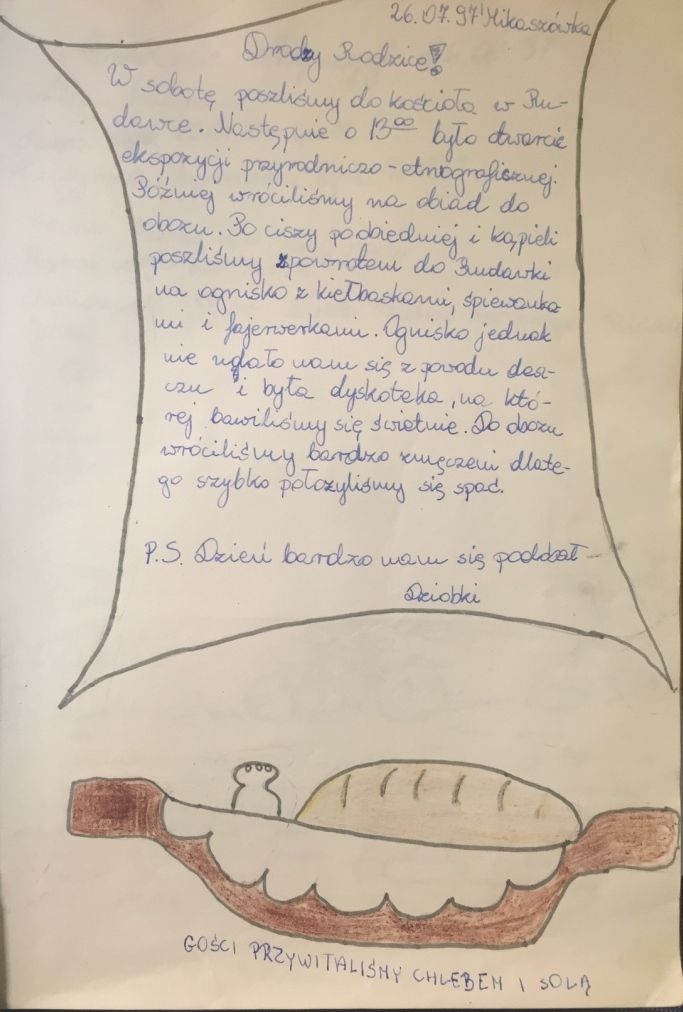 26.07.97' Mikaszówka
Drodzy Rodzice!
W sobotę poszliśmy do kościoła w Ru-
dawce. Następnie o 13⁰⁰ było otwarcie
ekspozycji przyrodniczo-etnograficznej.
Później wróciliśmy na obiad do
obozu. Po ciszy poobiedniej i kąpieli
poszliśmy zpowrotem do Rudawki
na ognisko z kiełbaskami, śpiewanka
mi i fajerwerkami. Ognisko jednak
nie udało nam się z powodu desz-
czu i była dyskoteka, na któ-
rej bawiliśmy się świetnie. Do obozu
wróciliśmy bardzo zmęczeni dlate-
go szybko położyliśmy się spać.
P.S. Dzień bardzo nam się podobał
Dziobki
GOŚCI PRZYWITALIŚMY CHLEBEM I SOLĄ